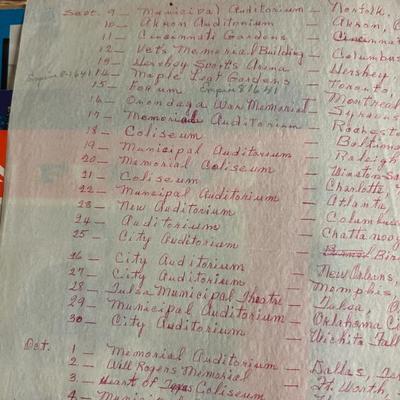 Sept. 9 — Municipal Auditorium — Norfolk,
10 — Akron Auditorium — Akron, O
11 — Cincinnati Gardens — Cincinnat
12 — Vet's Memorial Building — Columbus
13 — Hershey Sports Arena — Hershey
Empire 81641 14 — Maple Leaf Gardens — Toronto,
15 — Forum Empire 81641 — Montreal
16 — Onondaga War Memorial — Syracus
17 — Memorial Auditorium — Rochest
18 — Coliseum — Baltimo
19 — Municipal Auditorium — Raleigh
20 — Memorial Coliseum — Winston-Sa
21 — Coliseum — Charlotte,
22 — Municipal Auditorium — Atlanta,
23 — New Auditorium — Columbus
24 — Auditorium — Chattanoog
25 — City Auditorium — Bir
26 — City Auditorium — New Orleans,
27 — City Auditorium — Memphis,
28 — Tulsa Municipal Theatre — Tulsa, O
29 — Municipal Auditorium — Oklahoma Ci
30 — City Auditorium — Wichita Fall
Oct. 1 — Memorial Auditorium — Dallas, Te
2 — Will Rogers Memorial — Ft. Worth,
3 — Heart of Texas Coliseum
4 — Munici